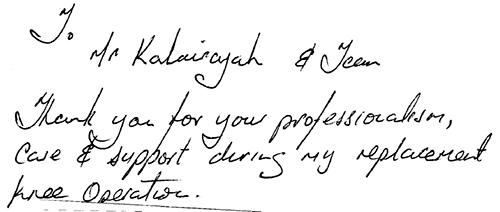 To
Mr Kalairajah & Team
Thank you for your professionalism,
Care & support during my replacement
knee Operation.